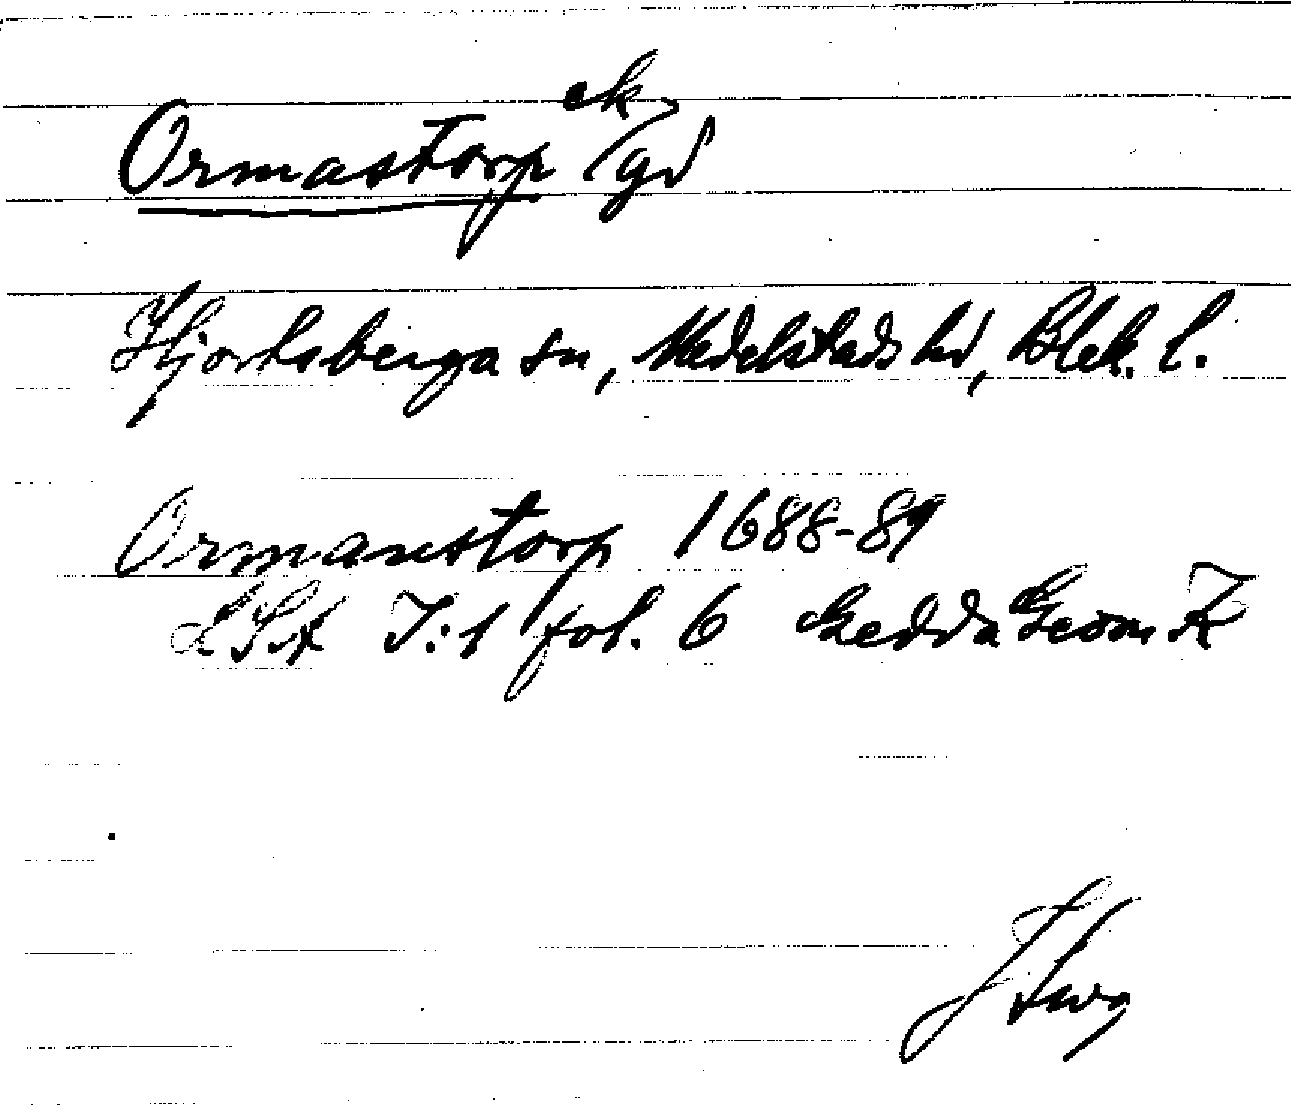 ek
Ormastorp gd
Hjortsberga sn, Medelstads hd, Blek. l.
Ormanstorp 1688-89
LSA I:1 fol. 6 Gedda Geom K